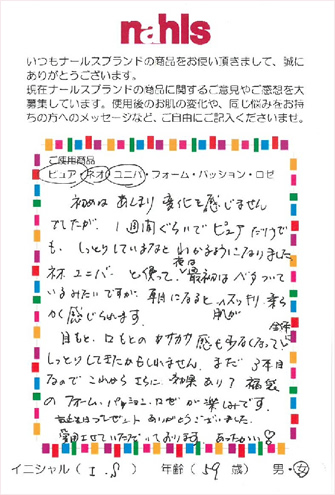 nahls
いつもナールスブランドの商品をお使い頂きまして、誠に
ありがとうございます。
現在ナールスブランドの商品に関するご意見やご感想を大
募集しています。使用後のお肌の変化や、同じ悩みをお持
ちの方へのメッセージなど、ご自由にご記入くださいませ。
ご使用商品
ピュア・ネオ・ユニバ・フォーム・パッション・ロゼ
初めは あんまり 変化を感じません
でしたが、1週間ぐらいで ピュア だけで
も、しっとりしているなと わかるようになりました
ネオ ユニバー と使って、夜は最初は ベタついて
いるみたいですが 朝になると スッキリ 柔ら
かく 感じられます。 肌が
目もと、口もとの カサカサ 感も少なくなって 全体に
しっとりしてきたかもしれません。まだ 3本目
なので これから さらに 効果 あり? 福袋
の フォーム・パッション・ロゼ が 楽しみです。
プレゼント ありがとうございました。
愛用させていただいております。あったかい♡
イニシャル( I.S ) 年齢( 59 歳) 男・女